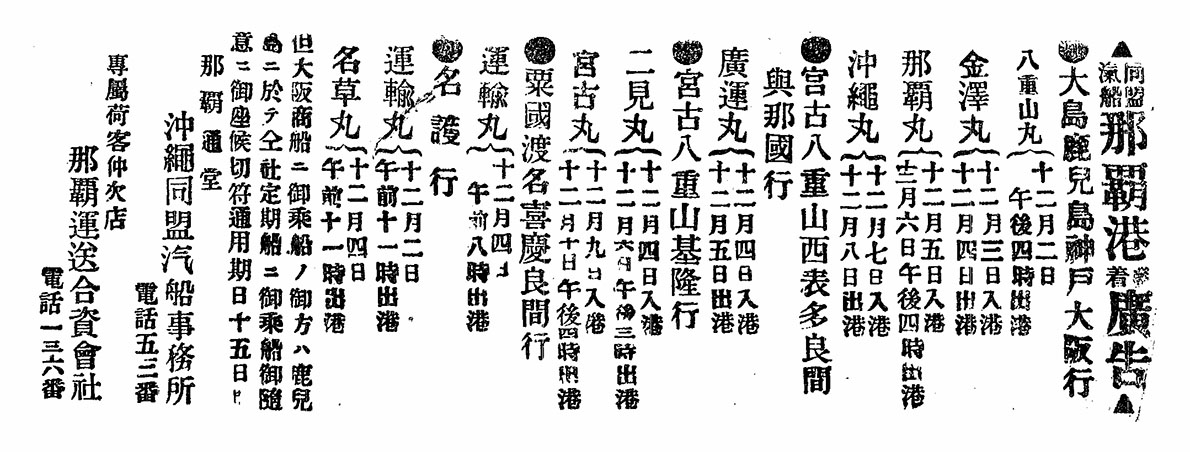 ▲同盟汽船那覇港發着廣告▲
●大島鹿兒島神戸大阪行
八重山丸{十二月二日午後四時出港
金澤丸{十二月三日入港
十二月四日出港
那覇丸{十二月五日入港
十二月六日午後四時出港
沖繩丸{十二月七日入港
十二月八日出港
●宮古八重山西表多良間
與那國行
廣運丸{十二月四日入港
十二月五日出港
●宮古八重山基隆行
二見丸{十二月四日入港
十二月六日午後三時出港
宮古丸{十二月九日入港
十二月十日午後四時出港
●粟國渡名喜慶良間行
運輸丸{十二月四日
午前八時出港
●名護行
運輸丸{十二月二日
午前十一時出港
名草丸{十二月四日
午前十一時出港
但大阪商船ニ御乘船ノ御方ハ鹿兒
島ニ於テ仝社定期船ニ御乘船御隨
意ニ御座候切符通用期日十五日
那覇通堂
沖繩同盟汽船事務所
電話五三番
專屬荷客仲次店
那覇運送合資會社
電話一三六番